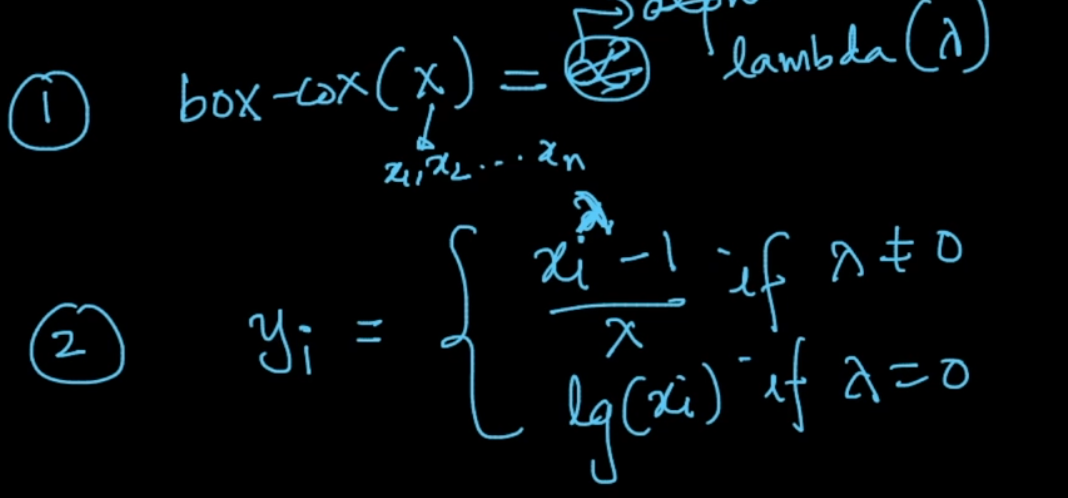 ① box-cox(x) = lambda(λ)
x₁,x₂...xₙ
② yᵢ = { (xᵢ^λ -1)/λ if λ≠0
lg(xᵢ) if λ=0